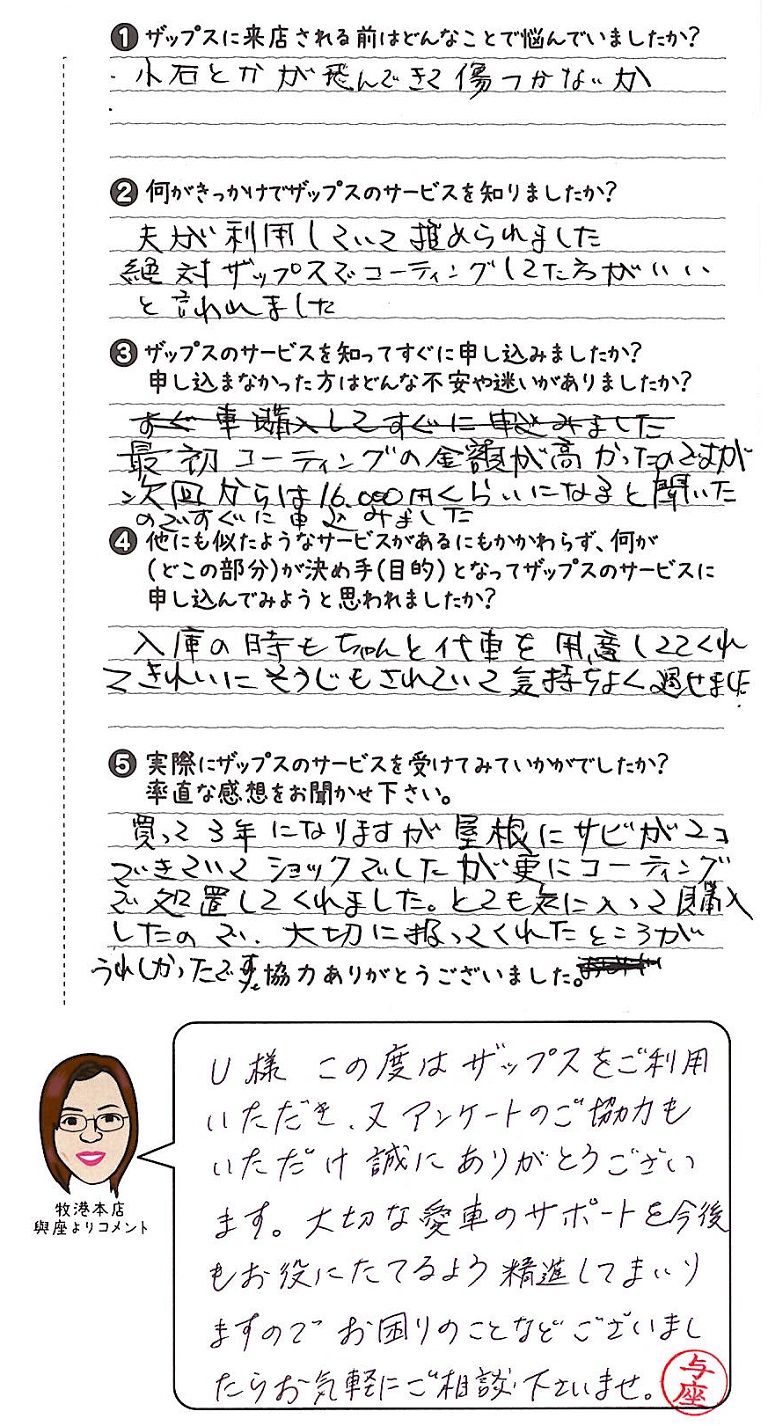 ❶ ザップスに来店される前はどんなことで悩んでいましたか?
小石とかが飛んできて傷つかないか
❷ 何がきっかけでザップスのサービスを知りましたか?
夫が利用していて推められました
絶対ザップスでコーティングしてた方がいい
と言われました
❸ ザップスのサービスを知ってすぐに申し込みましたか?
申し込まなかった方はどんな不安や迷いがありましたか?
すぐ 車購入してすぐに申込みました
最初コーティングの金額が高かったのですが
次回からは16.000円くらいになると聞いた
のですぐに申込みました
❹ 他にも似たようなサービスがあるにもかかわらず、何が
(どこの部分)が決め手(目的)となってザップスのサービスに
申し込んでみようと思われましたか?
入庫の時もちゃんと代車を用意しててくれ
てきれいにそうじもされていて気持ちよく過せました
❺ 実際にザップスのサービスを受けてみていかがでしたか?
率直な感想をお聞かせ下さい。
買って3年になりますが屋根にサビが2コ
できていてショックでしたが更にコーティング
で処置してくれました。とても気に入って購入
したので、大切に扱ってくれたところが
うれしかったです
協力ありがとうございました。
U様 この度はザップスをご利用
いただき、又アンケートのご協力も
いただけ誠にありがとうござい
ます。大切な愛車のサポートを今後
もお役にたてるよう精進してまいり
ますのでお困りのことなどございまし
たらお気軽にご相談下さいませ。
与座
牧港本店
與座よりコメント